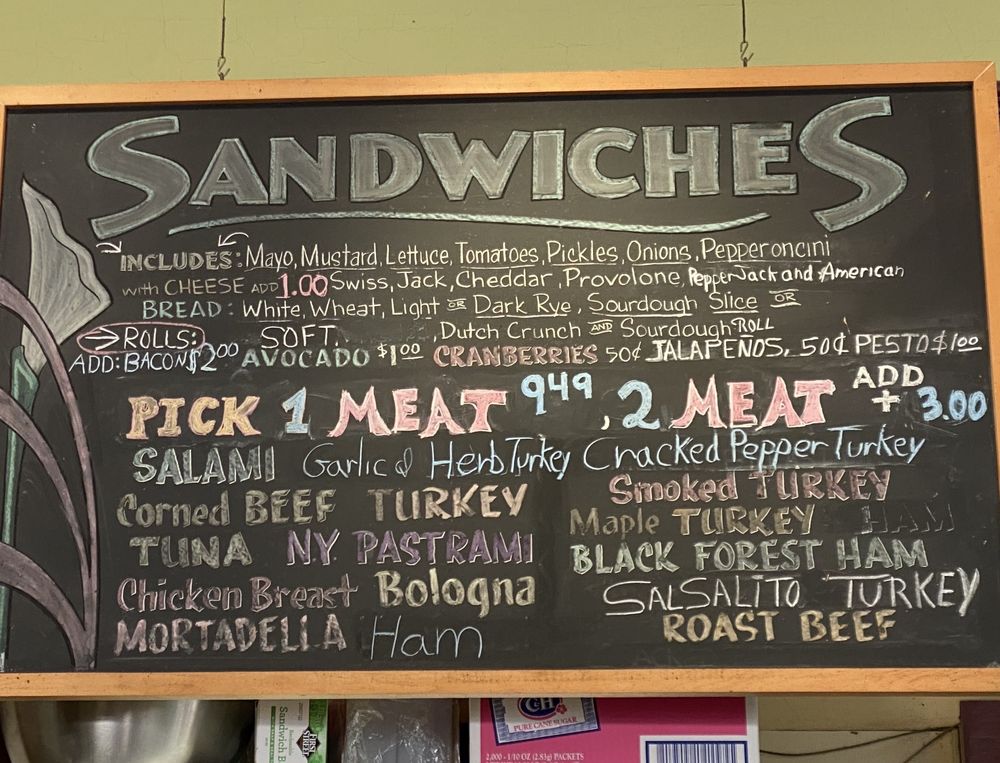 SANDWICHES
INCLUDES: Mayo, Mustard, Lettuce, Tomatoes, Pickles, Onions, Pepperoncini
with CHEESE ADD 1.00 Swiss, Jack, Cheddar, Provolone, Pepper Jack and American
BREAD: White, Wheat, Light OR Dark Rye, Sourdough Slice OR
→ROLLS: SOFT, Dutch Crunch AND Sourdough ROLL
ADD: BACON $2.00 AVOCADO $1.00 CRANBERRIES 50¢ JALAPEÑOS, 50¢ PESTO $1.00
PICK 1 MEAT 9.49, 2 MEAT ADD + 3.00
SALAMI Garlic & Herb Turkey Cracked Pepper Turkey
Corned BEEF TURKEY Smoked TURKEY
Maple TURKEY HAM
TUNA N.Y PASTRAMI BLACK FOREST HAM
Chicken Breast Bologna SALSALITO TURKEY
MORTADELLA Ham ROAST BEEF
FIRST STREET
Sandwich B
C&H
PURE CANE SUGAR
2,000 - 1/10 OZ (2.83g) PACKETS